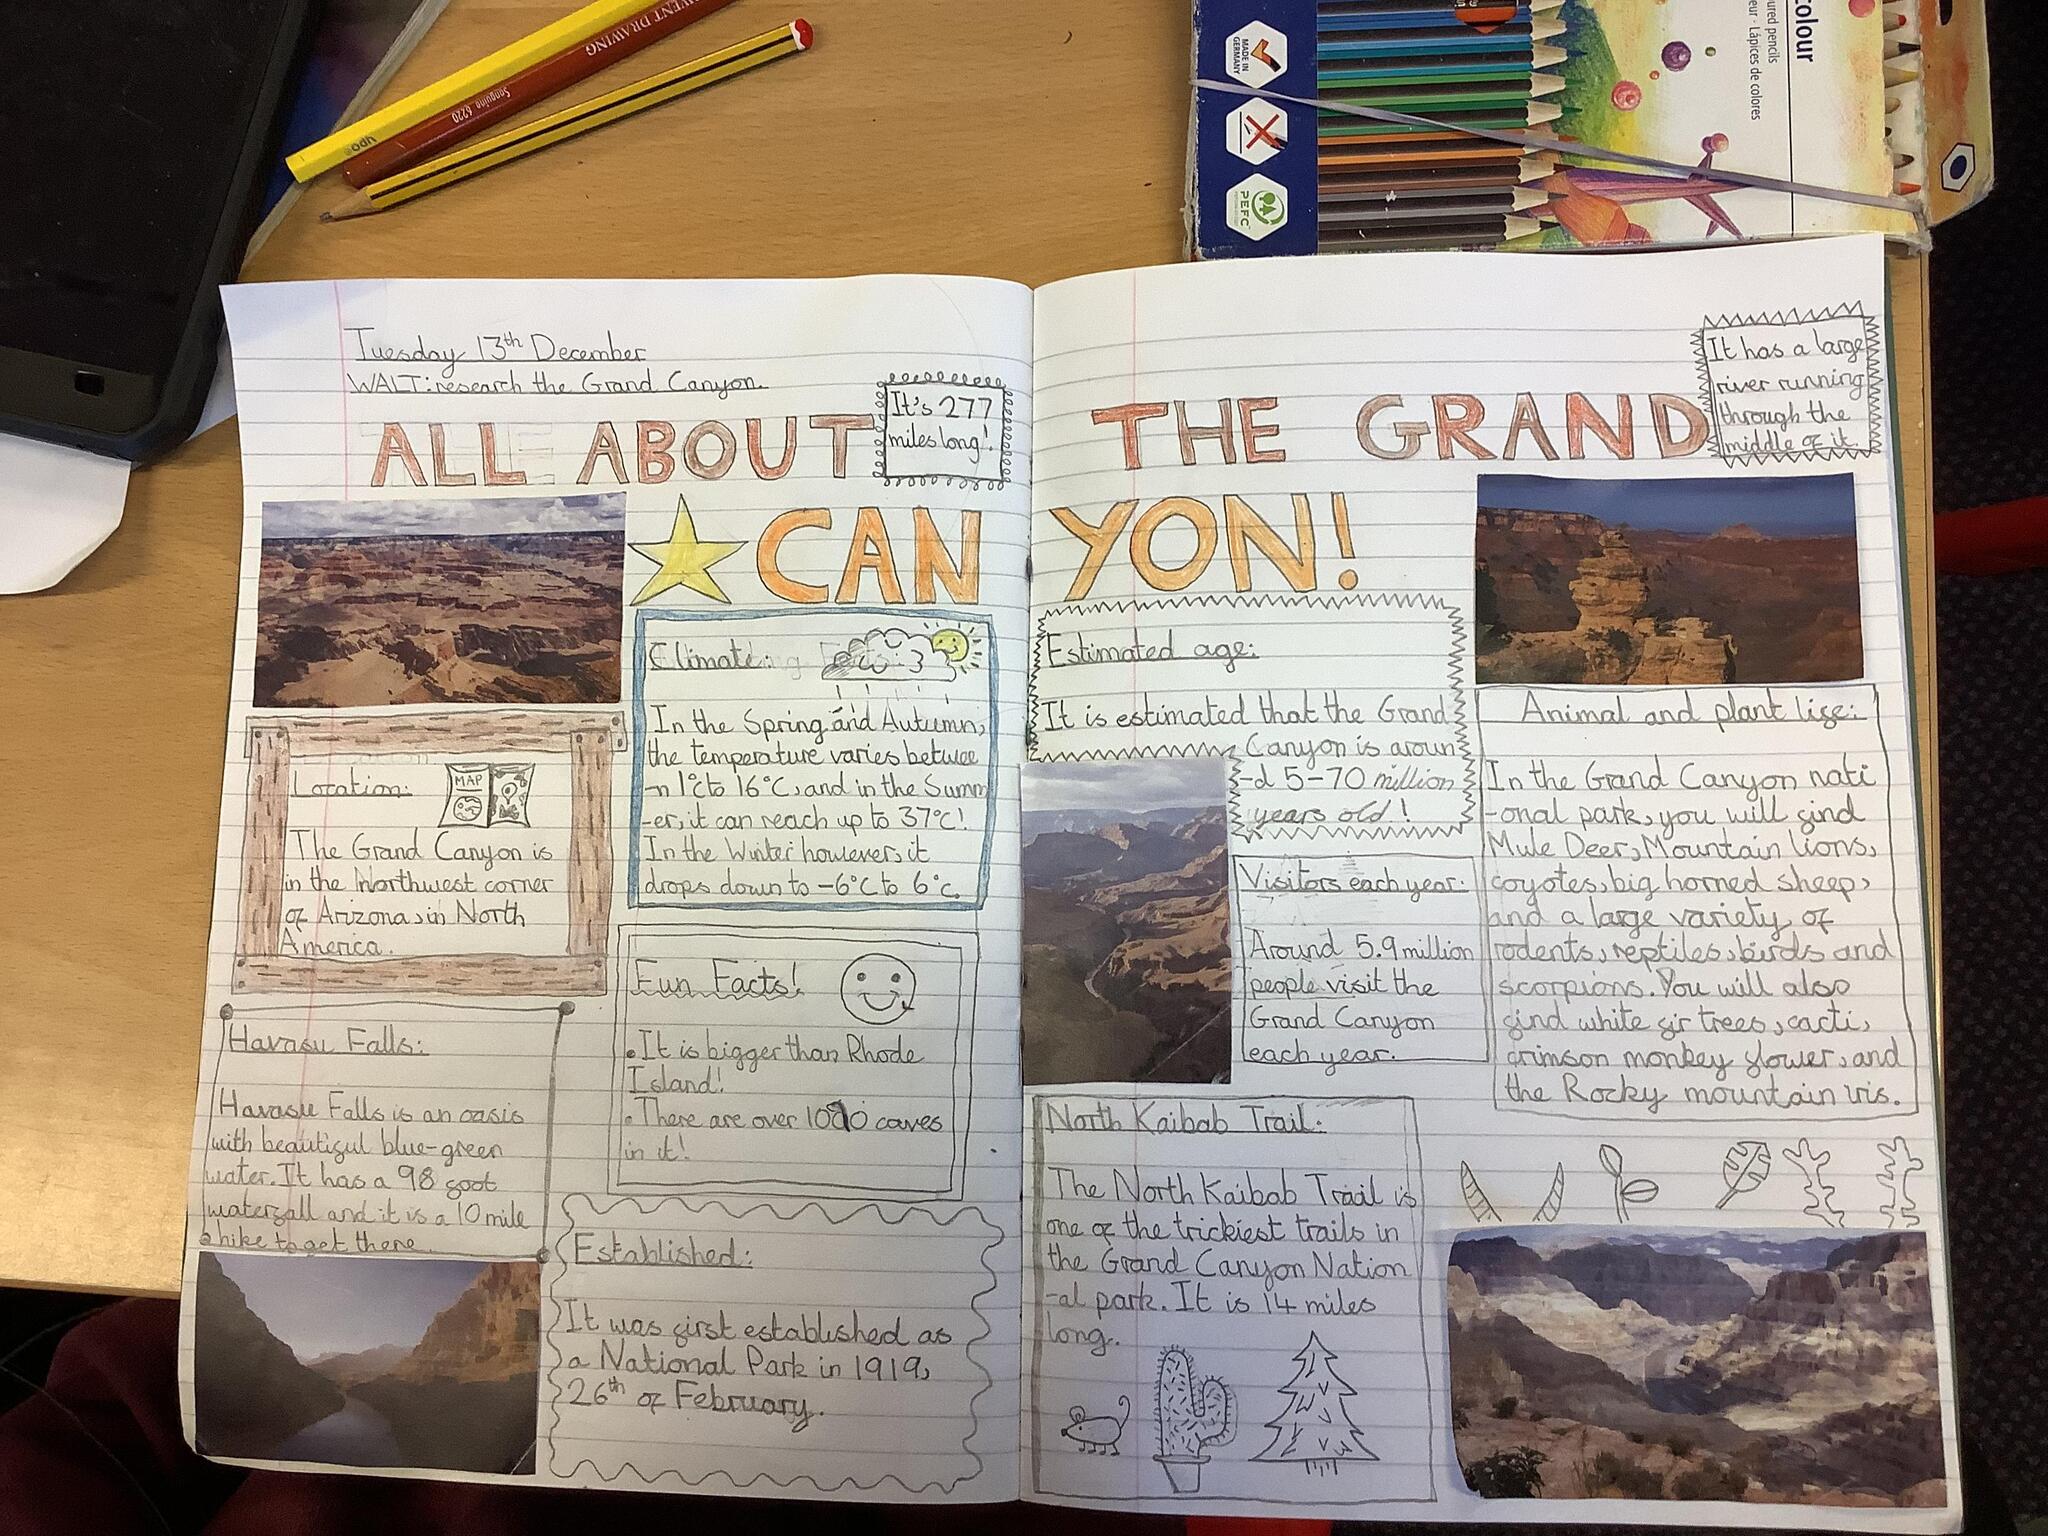 Tuesday 13th December
WALT: research the Grand Canyon.
ALL ABOUT
It's 277
miles long!
THE GRAND
It has a large
river running
through the
middle of it.
CANYON!
Location:
MAP
The Grand Canyon is
in the Northwest corner
of Arizona, in North
America.
Havasu Falls:
Havasu Falls is an oasis
with beautiful blue-green
water. It has a 98 foot
waterfall and it is a 10 mile
hike to get there.
Climate:
In the Spring and Autumn,
the temperature varies betwee
-n 1°c to 16°C, and in the Summ
-er, it can reach up to 37°C!
In the Winter however, it
drops down to -6°C to 6°c.
Fun Facts!
• It is bigger than Rhode
Island!
• There are over 1000 caves
in it!
Established:
It was first established as
a National Park in 1919,
26th of February.
Estimated age:
It is estimated that the Grand
Canyon is aroun
-d 5-70 million
years old!
Visitors each year:
Around 5.9 million
people visit the
Grand Canyon
each year.
North Kaibab Trail:
The North Kaibab Trail is
one of the trickiest trails in
the Grand Canyon Nation
-al park. It is 14 miles
long.
Animal and plant life:
In the Grand Canyon nati
-onal park, you will find
Mule Deer, Mountain lions,
coyotes, big horned sheep,
and a large variety of
rodents, reptiles, birds and
scorpions. You will also
find white fir trees, cacti,
crimson monkey flower, and
the Rocky mountain iris.
WENT DRAWING
Sanguine 6220
MADE IN
GERMANY
PEFC
colour
ured pencils
eur - Lápices de colores